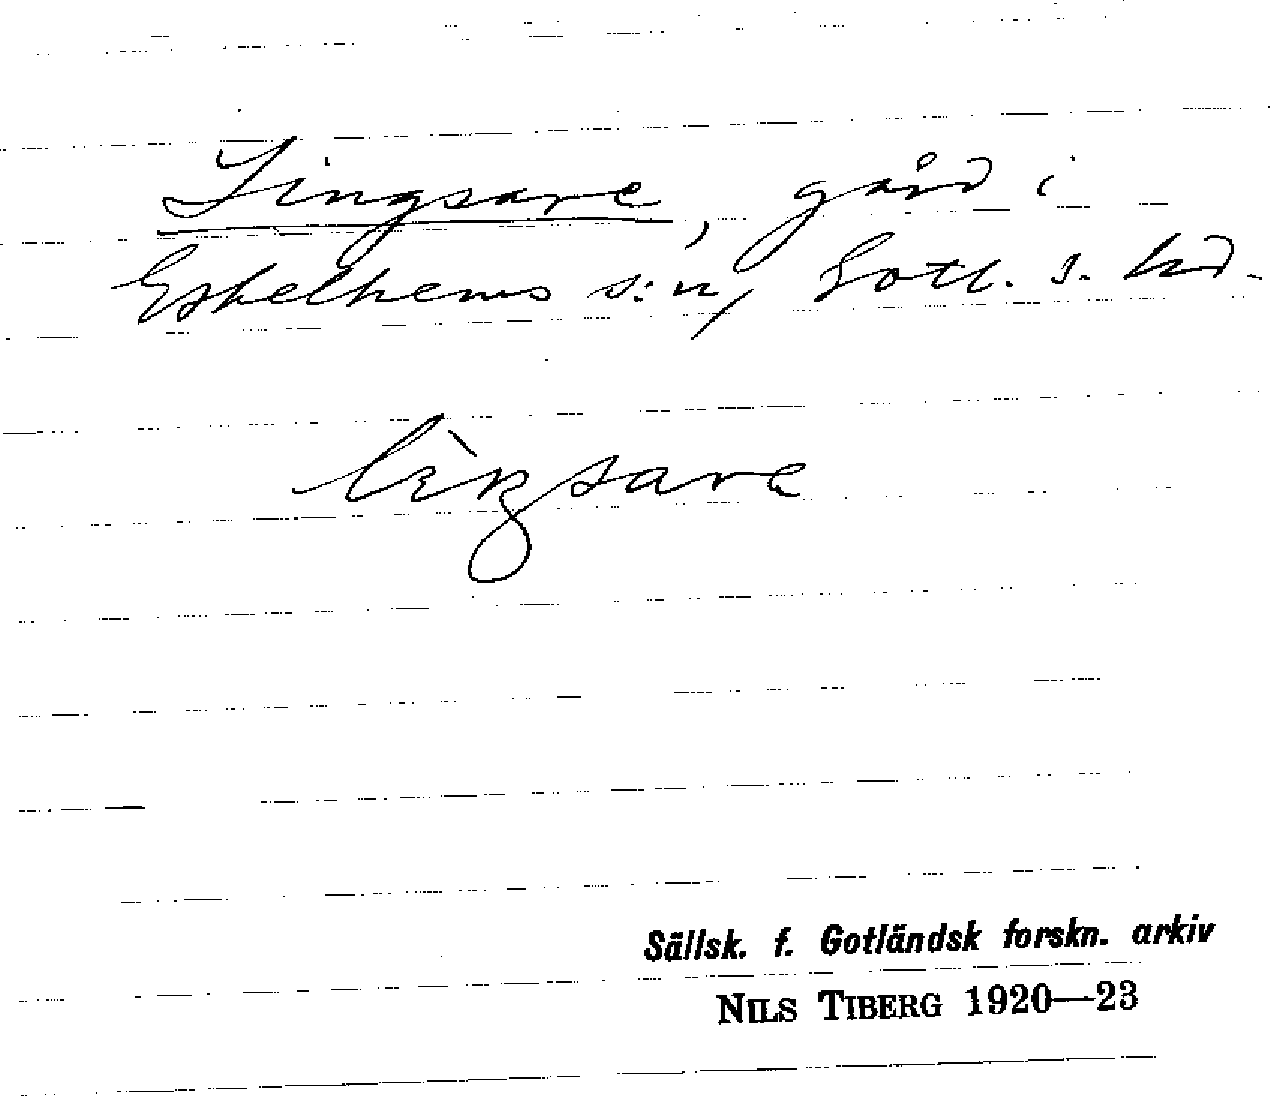 Lingsare, gård i
Eskelhems s:n, Gotl. s. hd.
lìŋsare
Sällsk. f. Gotländsk forskn. arkiv
NILS TIBERG 1920—23